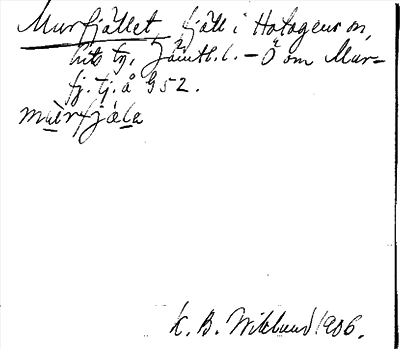 Murfjället, fjäll i Hotagens sn,
hits tg, Jämtl. l. – Ö om Mur-
fj. tj. å 952.
murfjäla
K. B. Wiklund 1906.